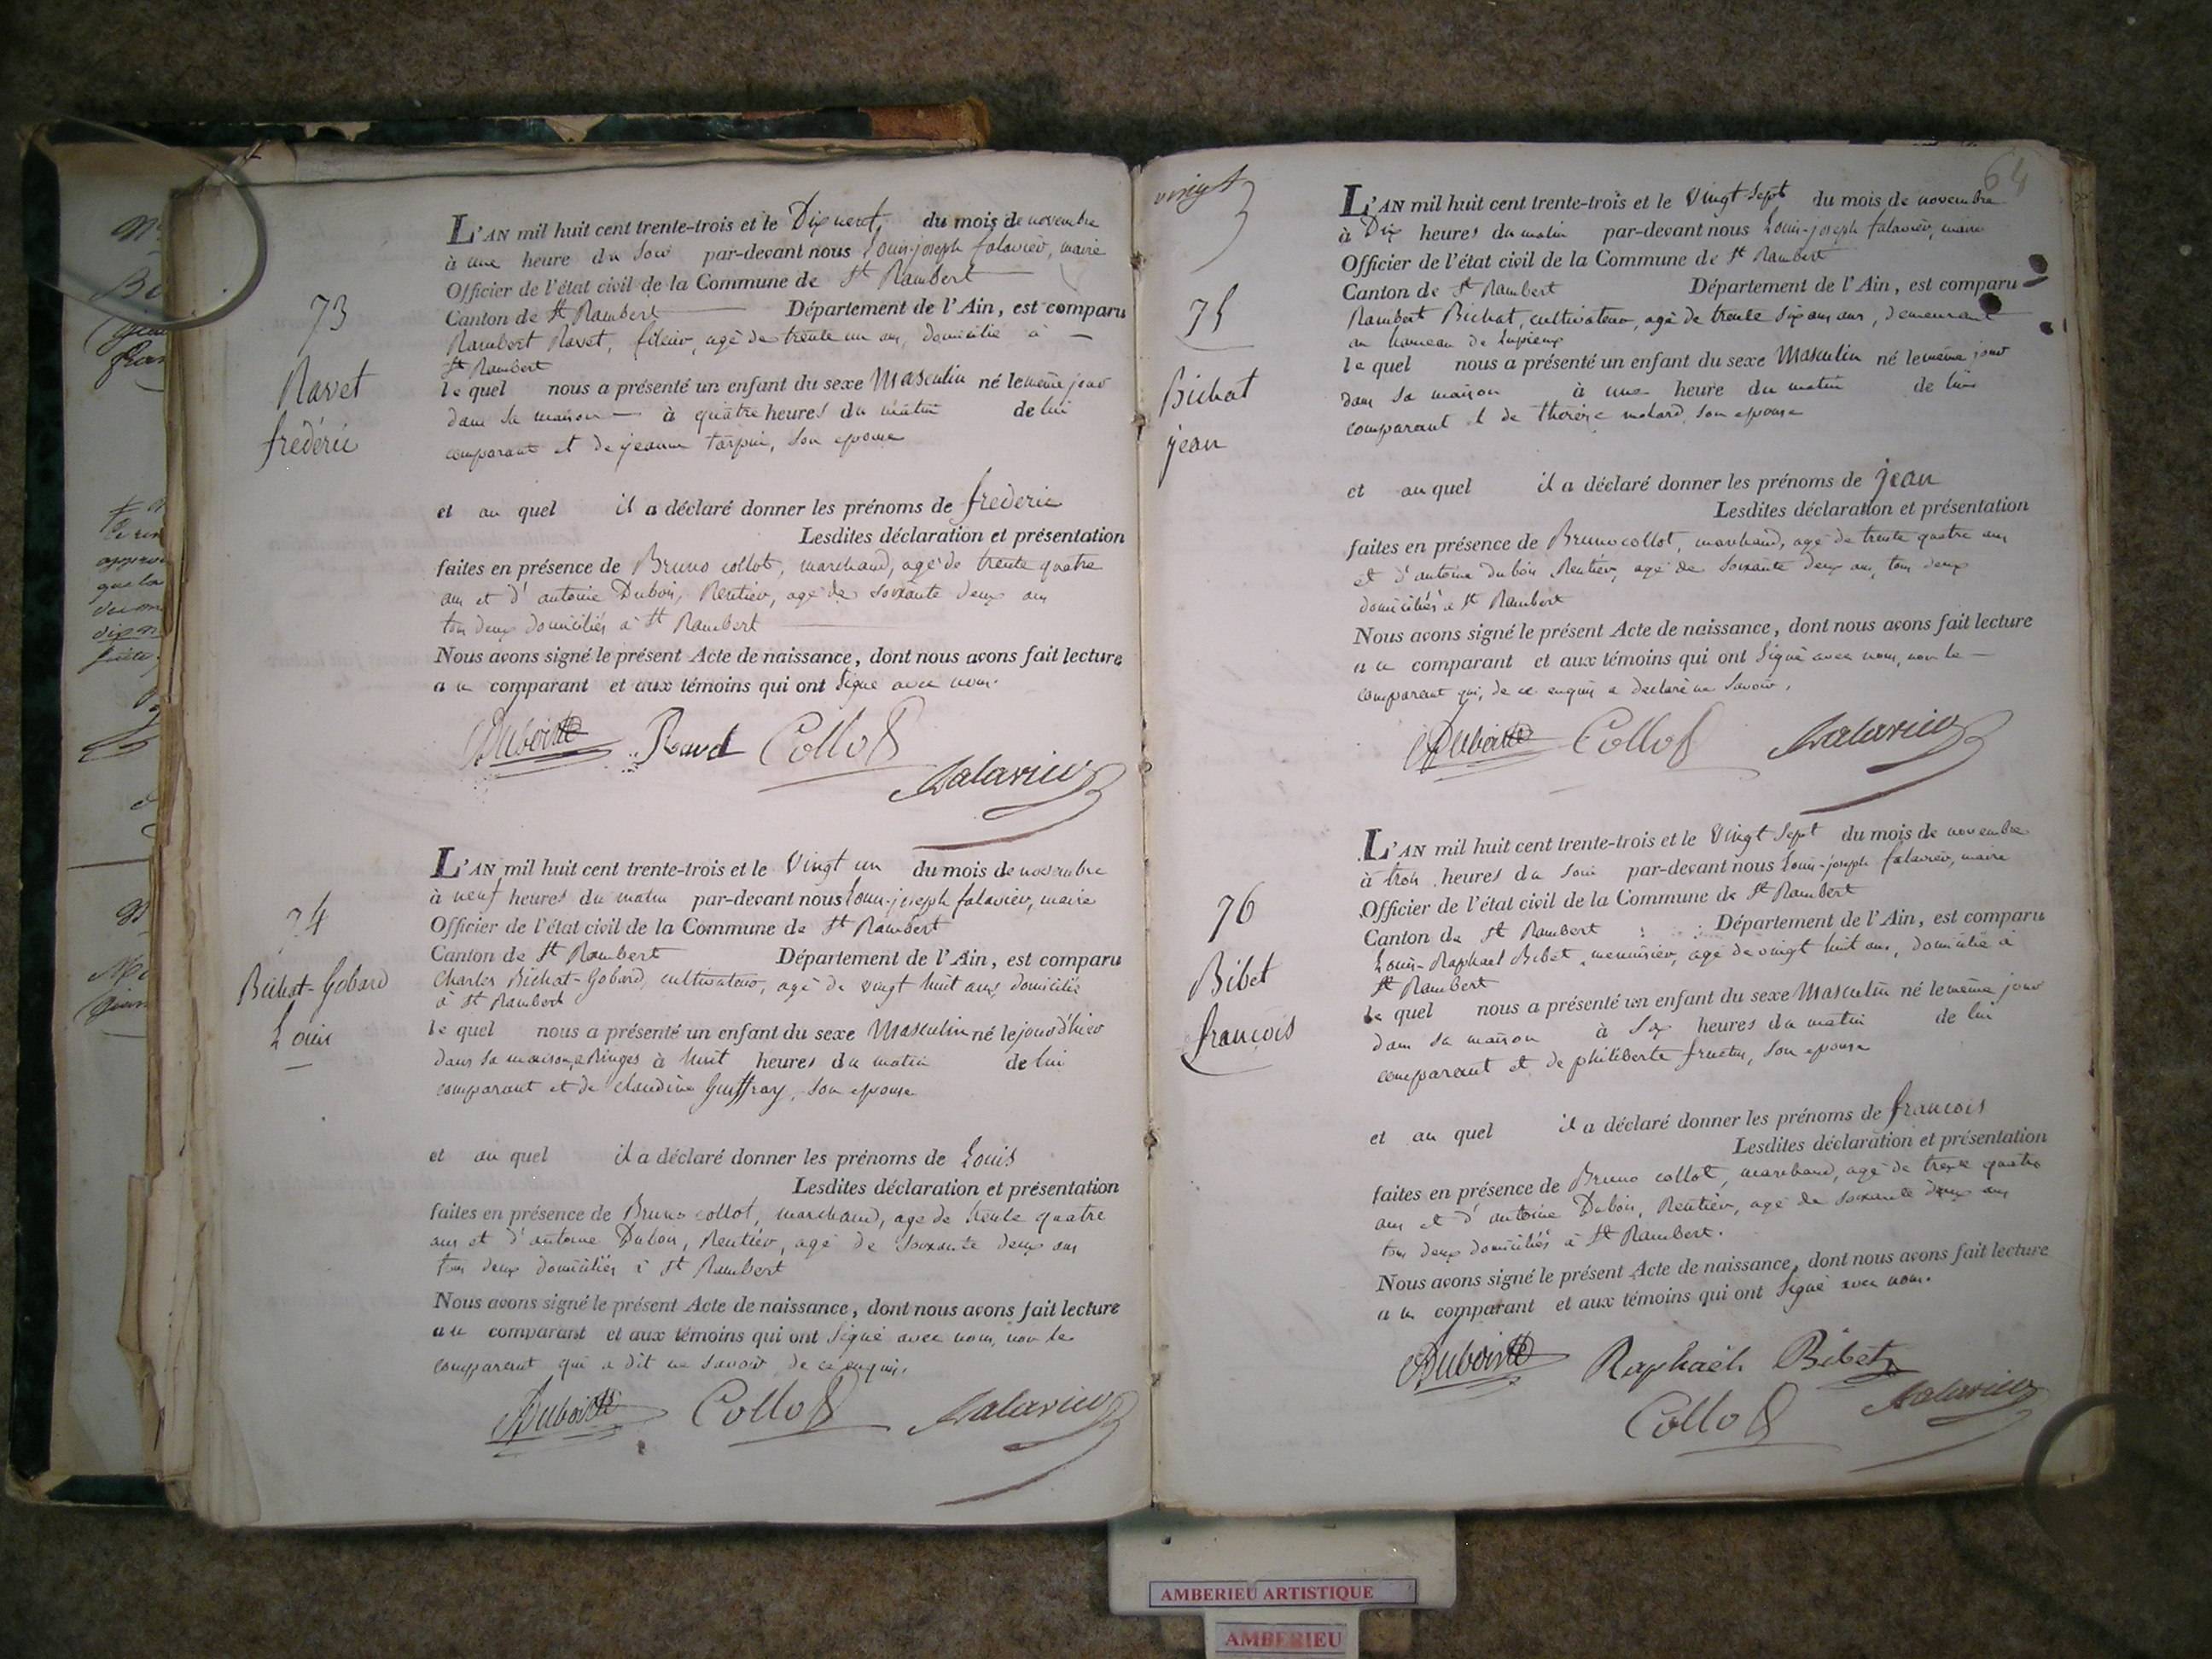 73
Ravet
frédéric
L'AN mil huit cent trente-trois et le Dix neuf du mois de novembre
à une heure du Soir par-devant nous Louis-joseph falavier, maire
Officier de l'état civil de la Commune de St Rambert
Canton de St Rambert Département de l'Ain, est comparu
Rambert Ravet, fileur, agé de trente un ans, domicilié à
St Rambert
le quel nous a présenté un enfant du sexe Masculin né le même jour
dans sa maison à quatre heures du matin de lui
comparant et de jeanne tarpin, son epouse
et au quel il a déclaré donner les prénoms de frederic
Lesdites déclaration et présentation
faites en présence de Bruno collot, marchand, agé de trente quatre
ans et d'antoine Dubois, Rentier, agé de soixante deux ans
tous deux domiciliés à St Rambert
Nous avons signé le présent Acte de naissance, dont nous avons fait lecture
au comparant et aux témoins qui ont Signé avec nous.
Dubois Ravet Collot
falavier
74
Bichat-Gobard
Louis
L'AN mil huit cent trente-trois et le Vingt un du mois de novembre
à neuf heures du matin par-devant nous Louis-joseph falavier, maire
Officier de l'état civil de la Commune de St Rambert
Canton de St Rambert Département de l'Ain, est comparu
Charles Bichat-Gobard, cultivateur, agé de vingt huit ans, domicilié
à St Rambert
le quel nous a présenté un enfant du sexe Masculin né le jour d'hier
dans sa maison, à Ringes à huit heures du matin de lui
comparant et de claudine Guiffray, son epouse
et au quel il a déclaré donner les prénoms de Louis
Lesdites déclaration et présentation
faites en présence de Bruno collot, marchand, agé de trente quatre
ans et d'antoine Dubois, Rentier, agé de soixante deux ans
tous deux domiciliés à St Rambert
Nous avons signé le présent Acte de naissance, dont nous avons fait lecture
au comparant et aux témoins qui ont Signé avec nous, non le
comparant qui a dit ne savoir de ce enquis.
Dubois Collot falavier
64
vingt
75
Bichat
jean
L'AN mil huit cent trente-trois et le Vingt Sept du mois de novembre
à Dix heures du matin par-devant nous Louis-joseph falavier, maire
Officier de l'état civil de la Commune de St Rambert
Canton de St Rambert Département de l'Ain, est comparu
Rambert Bichat, cultivateur, agé de trente six ans, demeurant
au hameau de Lupieux
le quel nous a présenté un enfant du sexe Masculin né le même jour
dans sa maison à une heure du matin de lui
comparant et de thérèse molard, son epouse
et au quel il a déclaré donner les prénoms de jean
Lesdites déclaration et présentation
faites en présence de Bruno collot, marchand, agé de trente quatre ans
et d'antoine Dubois Rentier, agé de soixante deux ans, tous deux
domiciliés à St Rambert
Nous avons signé le présent Acte de naissance, dont nous avons fait lecture
au comparant et aux témoins qui ont Signé avec nous, non le
comparant qui, de ce enquis a déclaré ne Savoir.
Dubois Collot falavier
76
Bibet
françois
L'AN mil huit cent trente-trois et le Vingt Sept du mois de novembre
à trois heures du Soir par-devant nous Louis-joseph falavier, maire
Officier de l'état civil de la Commune de St Rambert
Canton de St Rambert Département de l'Ain, est comparu
Louis-Raphael Bibet, menuisier, agé de vingt huit ans, domicilié à
St Rambert
le quel nous a présenté un enfant du sexe Masculin né le même jour
dans sa maison à Six heures du matin de lui
comparant et de philiberte , son epouse
et au quel il a déclaré donner les prénoms de françois
Lesdites déclaration et présentation
faites en présence de Bruno collot, marchand, agé de trente quatre
ans et d'antoine Dubois, Rentier, agé de soixante deux ans
tous deux domiciliés à St Rambert.
Nous avons signé le présent Acte de naissance, dont nous avons fait lecture
au comparant et aux témoins qui ont Signé avec nous.
Dubois Raphaël Bibet
Collot falavier
AMBERIEU ARTISTIQUE
AMBERIEU